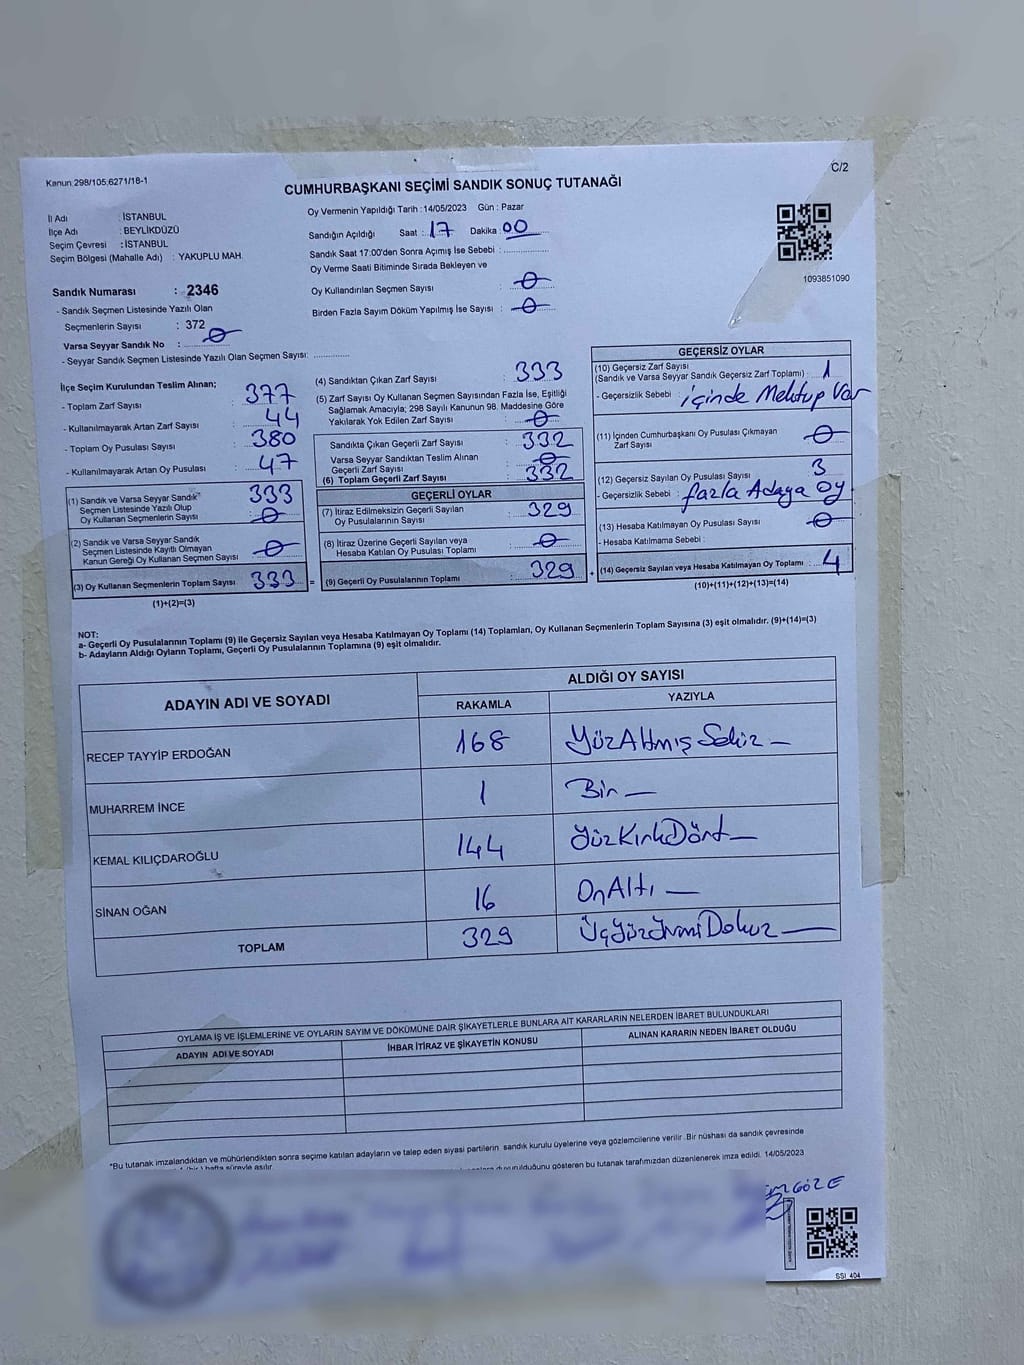 Kanun 298/105;6271/18-1
C/2
CUMHURBAŞKANI SEÇİMİ SANDIK SONUÇ TUTANAĞI
İl Adı : İSTANBUL
İlçe Adı : BEYLİKDÜZÜ
Seçim Çevresi : İSTANBUL
Seçim Bölgesi (Mahalle Adı) : YAKUPLU MAH.
Oy Vermenin Yapıldığı Tarih :14/05/2023 Gün : Pazar
Sandığın Açıldığı Saat : 17 Dakika : 00
Sandık Saat 17:00'den Sonra Açılmış İse Sebebi :
Oy Verme Saati Bitiminde Sırada Bekleyen ve
Oy Kullandırılan Seçmen Sayısı : 0
Birden Fazla Sayım Döküm Yapılmış İse Sayısı : 0
1093851090
Sandık Numarası : 2346
- Sandık Seçmen Listesinde Yazılı Olan
Seçmenlerin Sayısı : 372
Varsa Seyyar Sandık No : 0
- Seyyar Sandık Seçmen Listesinde Yazılı Olan Seçmen Sayısı:
İlçe Seçim Kurulundan Teslim Alınan;
- Toplam Zarf Sayısı : 377
- Kullanılmayarak Artan Zarf Sayısı : 44
- Toplam Oy Pusulası Sayısı : 380
- Kullanılmayarak Artan Oy Pusulası : 47
(1) Sandık ve Varsa Seyyar Sandık 333
Seçmen Listesinde Yazılı Olup
Oy Kullanan Seçmenlerin Sayısı : 0
(2) Sandık ve Varsa Seyyar Sandık
Seçmen Listesinde Kayıtlı Olmayan
Kanun Gereği Oy Kullanan Seçmen Sayısı : 0
(3) Oy Kullanan Seçmenlerin Toplam Sayısı : 333 =
(1)+(2)=(3)
(4) Sandıktan Çıkan Zarf Sayısı : 333
(5) Zarf Sayısı Oy Kullanan Seçmen Sayısından Fazla İse, Eşitliği
Sağlamak Amacıyla; 298 Sayılı Kanunun 98. Maddesine Göre
Yakılarak Yok Edilen Zarf Sayısı : 0
Sandıkta Çıkan Geçerli Zarf Sayısı : 332
Varsa Seyyar Sandıktan Teslim Alınan
Geçerli Zarf Sayısı : 0
(6) Toplam Geçerli Zarf Sayısı : 332
GEÇERLİ OYLAR
(7) İtiraz Edilmeksizin Geçerli Sayılan
Oy Pusulalarının Sayısı : 329
(8) İtiraz Üzerine Geçerli Sayılan veya
Hesaba Katılan Oy Pusulası Toplamı : 0
(9) Geçerli Oy Pusulalarının Toplamı : 329 +
GEÇERSİZ OYLAR
(10) Geçersiz Zarf Sayısı
(Sandık ve Varsa Seyyar Sandık Geçersiz Zarf Toplamı) : 1
- Geçersizlik Sebebi : içinde Mektup Var
(11) İçinden Cumhurbaşkanı Oy Pusulası Çıkmayan
Zarf Sayısı : 0
(12) Geçersiz Sayılan Oy Pusulası Sayısı : 3
- Geçersizlik Sebebi : fazla Adaya Oy
(13) Hesaba Katılmayan Oy Pusulası Sayısı : 0
- Hesaba Katılmama Sebebi :
(14) Geçersiz Sayılan veya Hesaba Katılmayan Oy Toplamı : 4
(10)+(11)+(12)+(13)=(14)
NOT:
a- Geçerli Oy Pusulalarının Toplamı (9) ile Geçersiz Sayılan veya Hesaba Katılmayan Oy Toplamı (14) Toplamları, Oy Kullanan Seçmenlerin Toplam Sayısına (3) eşit olmalıdır. (9)+(14)=(3)
b- Adayların Aldığı Oyların Toplamı, Geçerli Oy Pusulalarının Toplamına (9) eşit olmalıdır.
ADAYIN ADI VE SOYADI
ALDIĞI OY SAYISI
RAKAMLA YAZIYLA
RECEP TAYYİP ERDOĞAN 168 YüzAltmış Sekiz
MUHARREM İNCE 1 Bir
KEMAL KILIÇDAROĞLU 144 YüzKırkDört
SİNAN OĞAN 16 OnAltı
TOPLAM 329 ÜçYüzYirmiDokuz
OYLAMA İŞ VE İŞLEMLERİNE VE OYLARIN SAYIM VE DÖKÜMÜNE DAİR ŞİKAYETLERLE BUNLARA AİT KARARLARIN NELERDEN İBARET BULUNDUKLARI
ADAYIN ADI VE SOYADI İHBAR İTİRAZ VE ŞİKAYETİN KONUSU ALINAN KARARIN NEDEN İBARET OLDUĞU
*Bu tutanak imzalandıktan ve mühürlendikten sonra seçime katılan adayların ve talep eden siyasi partilerin sandık kurulu üyelerine veya gözlemcilerine verilir. Bir nüshası da sandık çevresinde
hafta süreyle asılır. duyurulduğunu gösteren bu tutanak tarafımızdan düzenlenerek imza edildi. 14/05/2023
SSİ 404